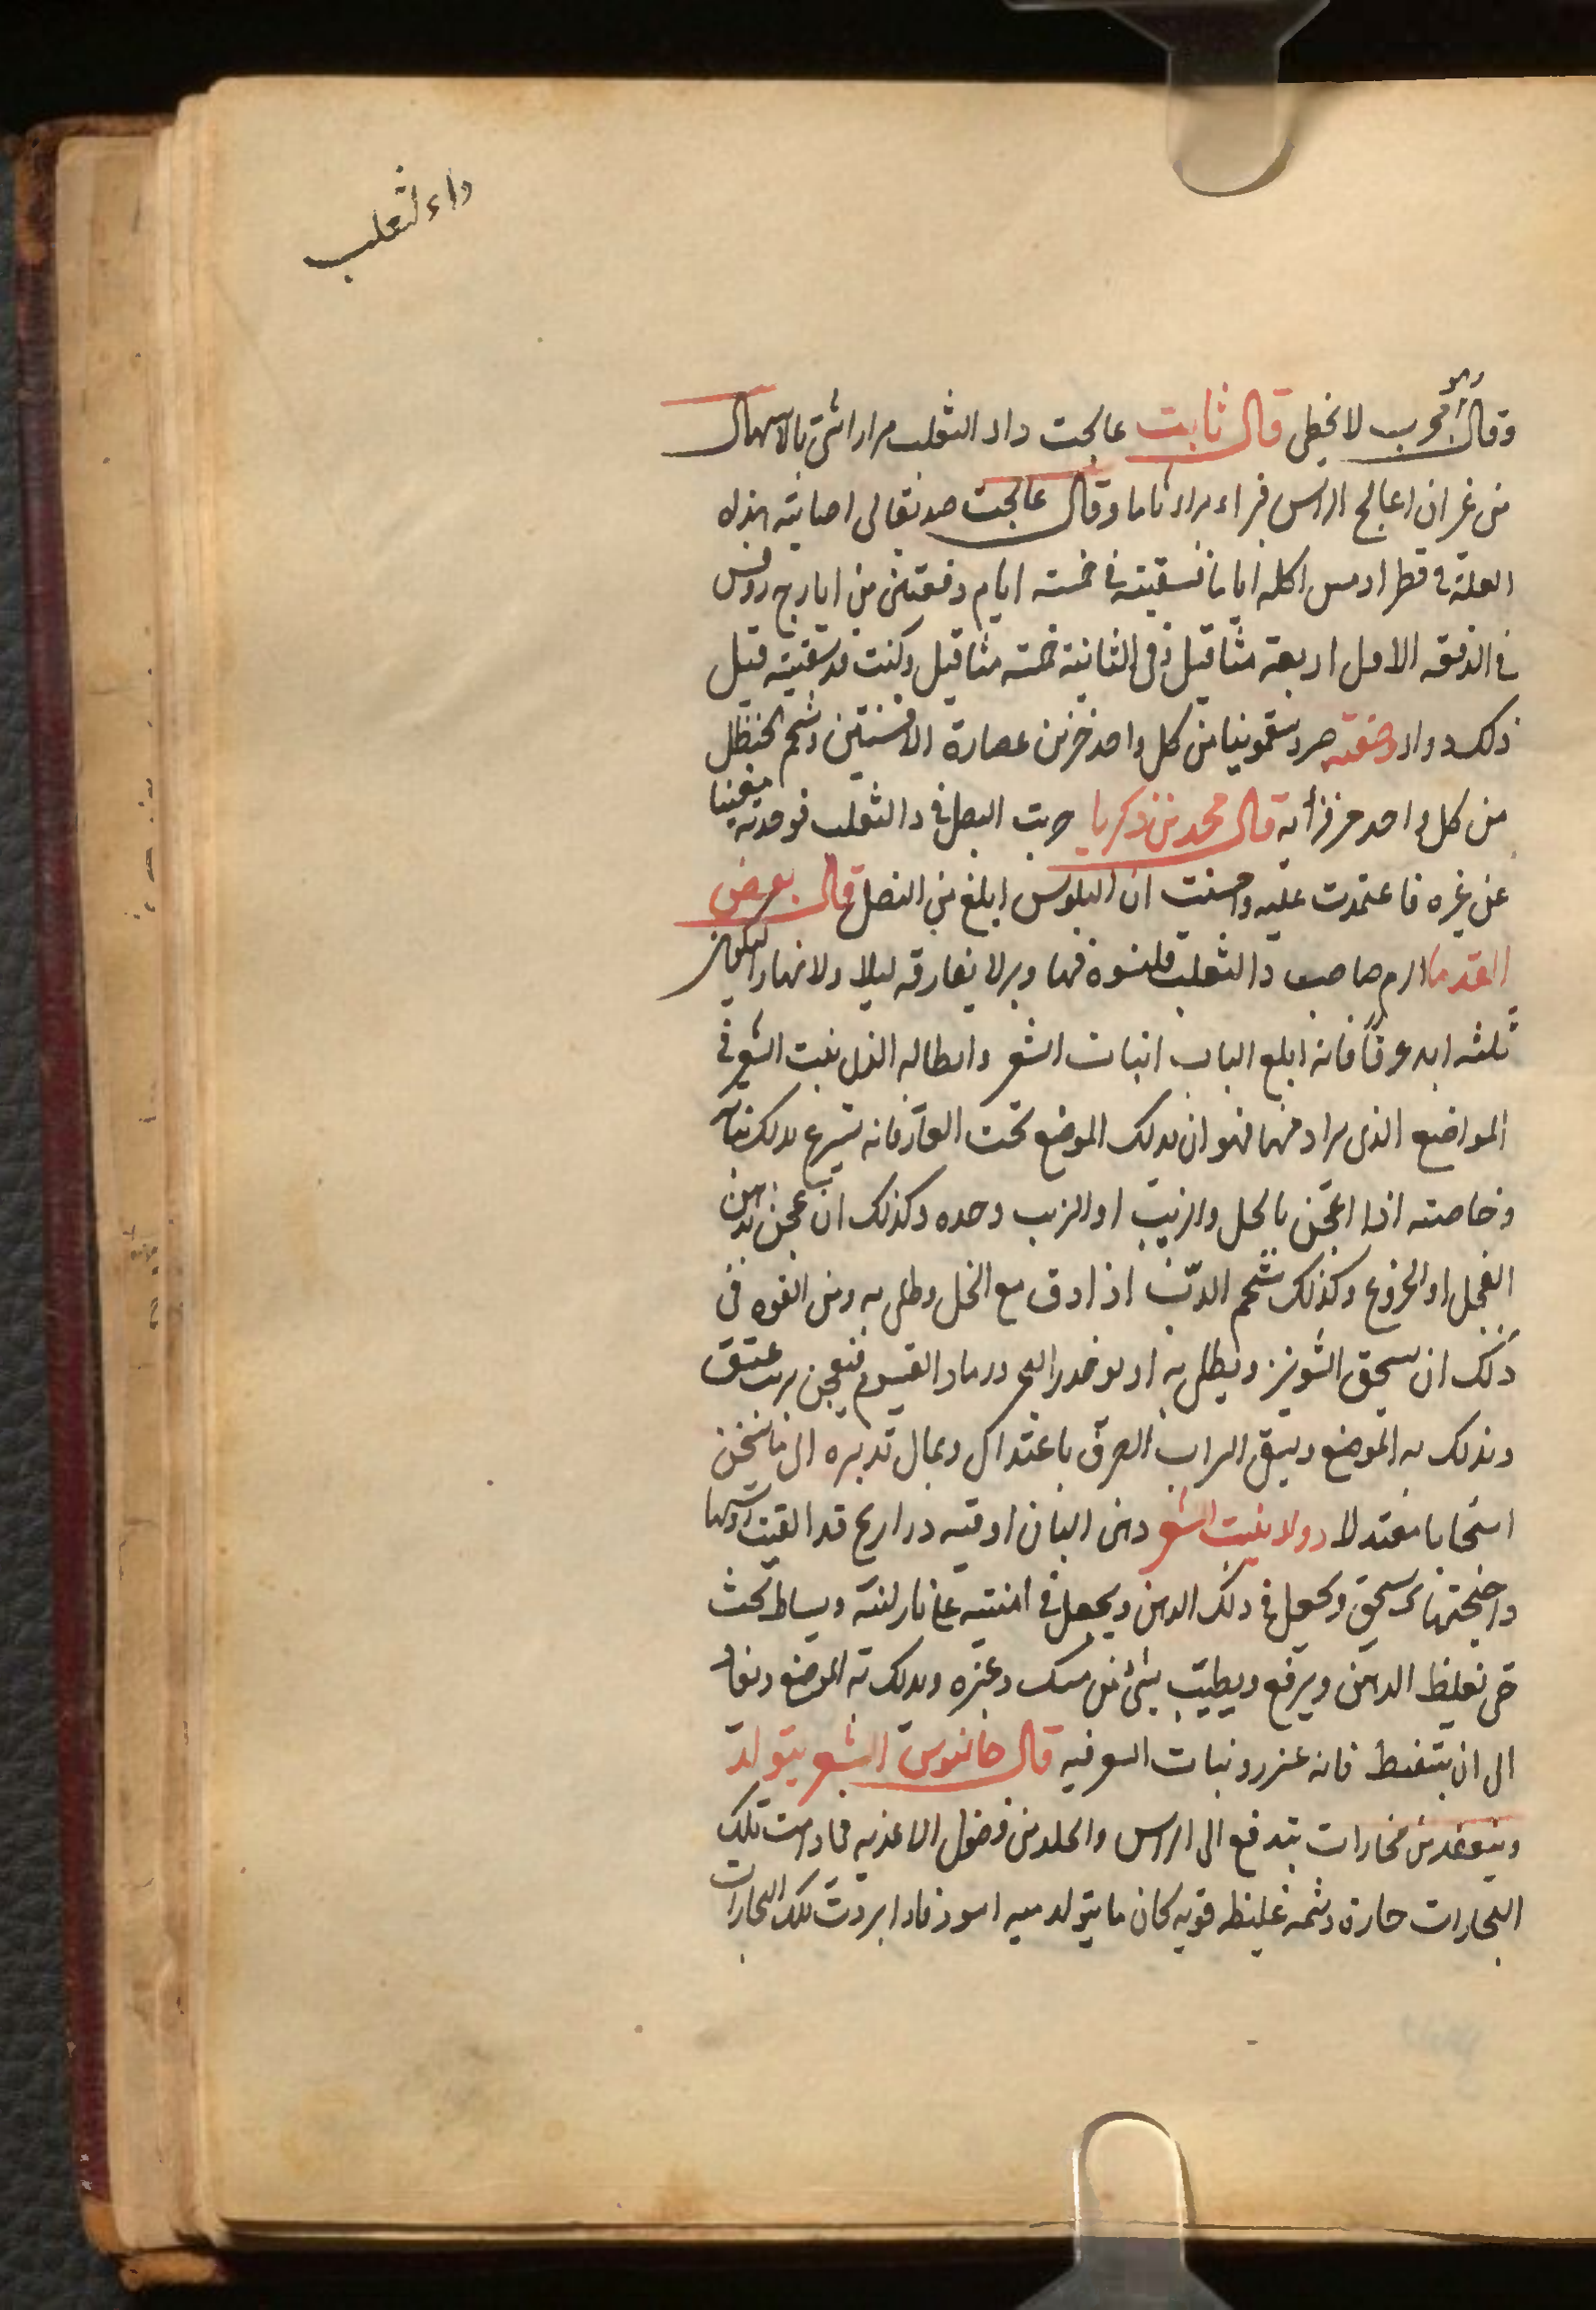 داء لثعلب
وهو
وقال انه مجرب لا يخطى قال ثابت عالجت داء الثعلب مرارا شتى بالاسهال
من غير ان اعالج الراس فبراء براء تاما وقال عالجت صديقا لى اصابته هذه
العلة فى قطرا دمس اكله اياما فسقيته فى خمسه ايام دفعتين من ايارج روفس
فى الدفعه الاولى اربعة مثاقيل وفى الثانية خمسه مثاقيل وكنت قد سقيته قبل
ذلك دواء وصفته صبر وسقمونيا من كل واحد جزين عصارة الافسنتين وشحم الحنظل
من كل واحد جزء قال محمد بن زكريا جربت البصل فى دا الثعلب فوجدته مغنيا
عن غيره فاعتمدت عليه واحسنت ان البلبوس ابلغ من البصل قال بعض
القدما الزم صاحب دا الثعلب قلنسوة فيها وبر لا يفارقه ليلا ولا نهارا ليكون
ثلثه ابد عرقا فانه ابلغ الباب انبات الشعر وابطاله الذى ينبت الشعر فى
المواضع الذى يراد فيها فهو ان يدلك الموضع تحت الفار فانه يسرع بدلك نبات
وخاصته اذا اعجن بالخل والزيت او الزيت وحده وكذلك ان عجن بدهن
الفجل او الخروع وكذلك شحم الدب اذا دق مع الخل وطلى به ومن القوه فى
ذلك ان يسحق الشونيز ويطلى به او يوخذ زبد البحر ورماد القيسوم فيعجن بزيت عتيق
وبدلك به الموضع ويسقى الشراب الصرف باعتدال ويمال تدبيره الى ما يسخن
اسخانا معتدلا دوا ينبت الشعر دهن البان اوقيه دراريح قد القيت روسها
واجنحتها ثم يسحق ويجعل فى ذلك الدهن ويجعل فى اننيه على نار لينه ويساط بحث
حتى يغلظ الدهن ويرفع ويطيب بشئ من مسك وعنبره ويدلك به الموضع ويعاد
الى ان يتنفط فانه عزر ونبات الشعر فيه قال جالنوس الشعر يتولد
وينعقد من بخارات يندفع الى الراس والجلد من فضول الاغذيه فما دامت تلك
البخارات حارة دسمه غليظه قويه كان ما يتولد منه اسود فاذا بردت تلك البخارات